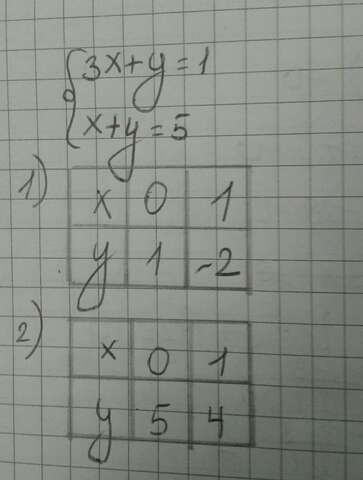 3x+y=1
x+y=5
1)
x 0 1
y 1 -2
2)
x 0 1
y 5 4